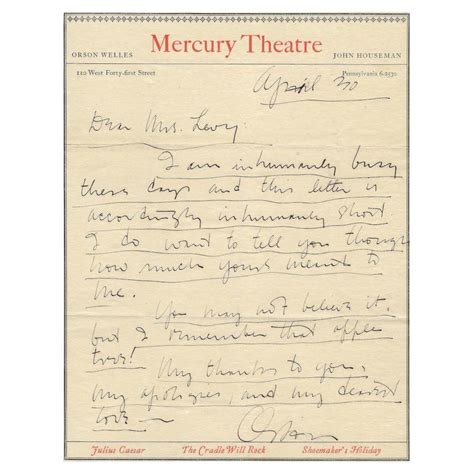 Mercury Theatre
ORSON WELLES
JOHN HOUSEMAN
110 West Forty-first Street
Pennsylvania 6-2530
April 20
Dear Mrs. Levy,
I am inhumanly busy
these days and this letter is
accordingly inhumanly short
I do want to tell you though
how much yours meant to
me.
You may not believe it,
but I remember that apple
tree!
My thanks to you,
my apologies, and my dearest
love —
Orson
Julius Caesar
The Cradle Will Rock
Shoemaker's Holiday